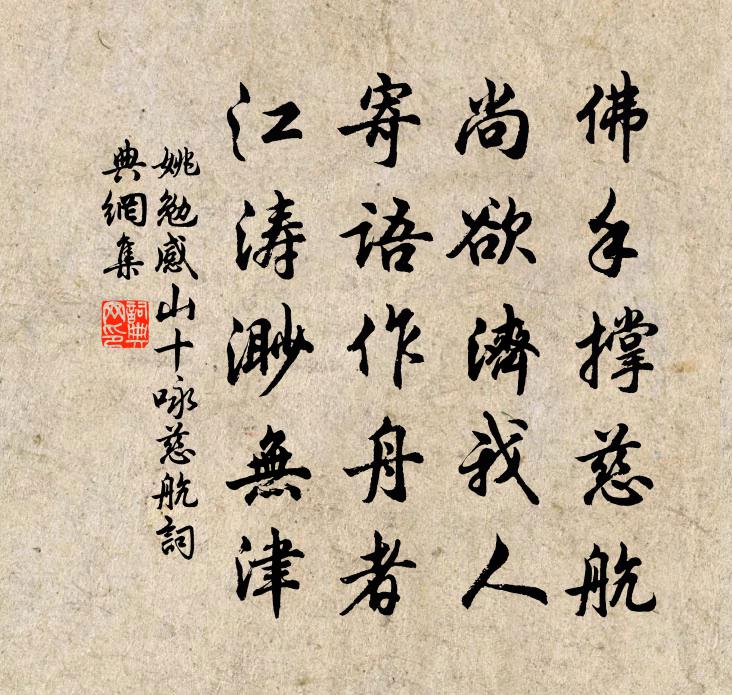 佛手撐慈航
尚欲濟我人
寄語作舟者
江涛渺無津
姚勉感山十咏慈航詞
典網集
詞典网印